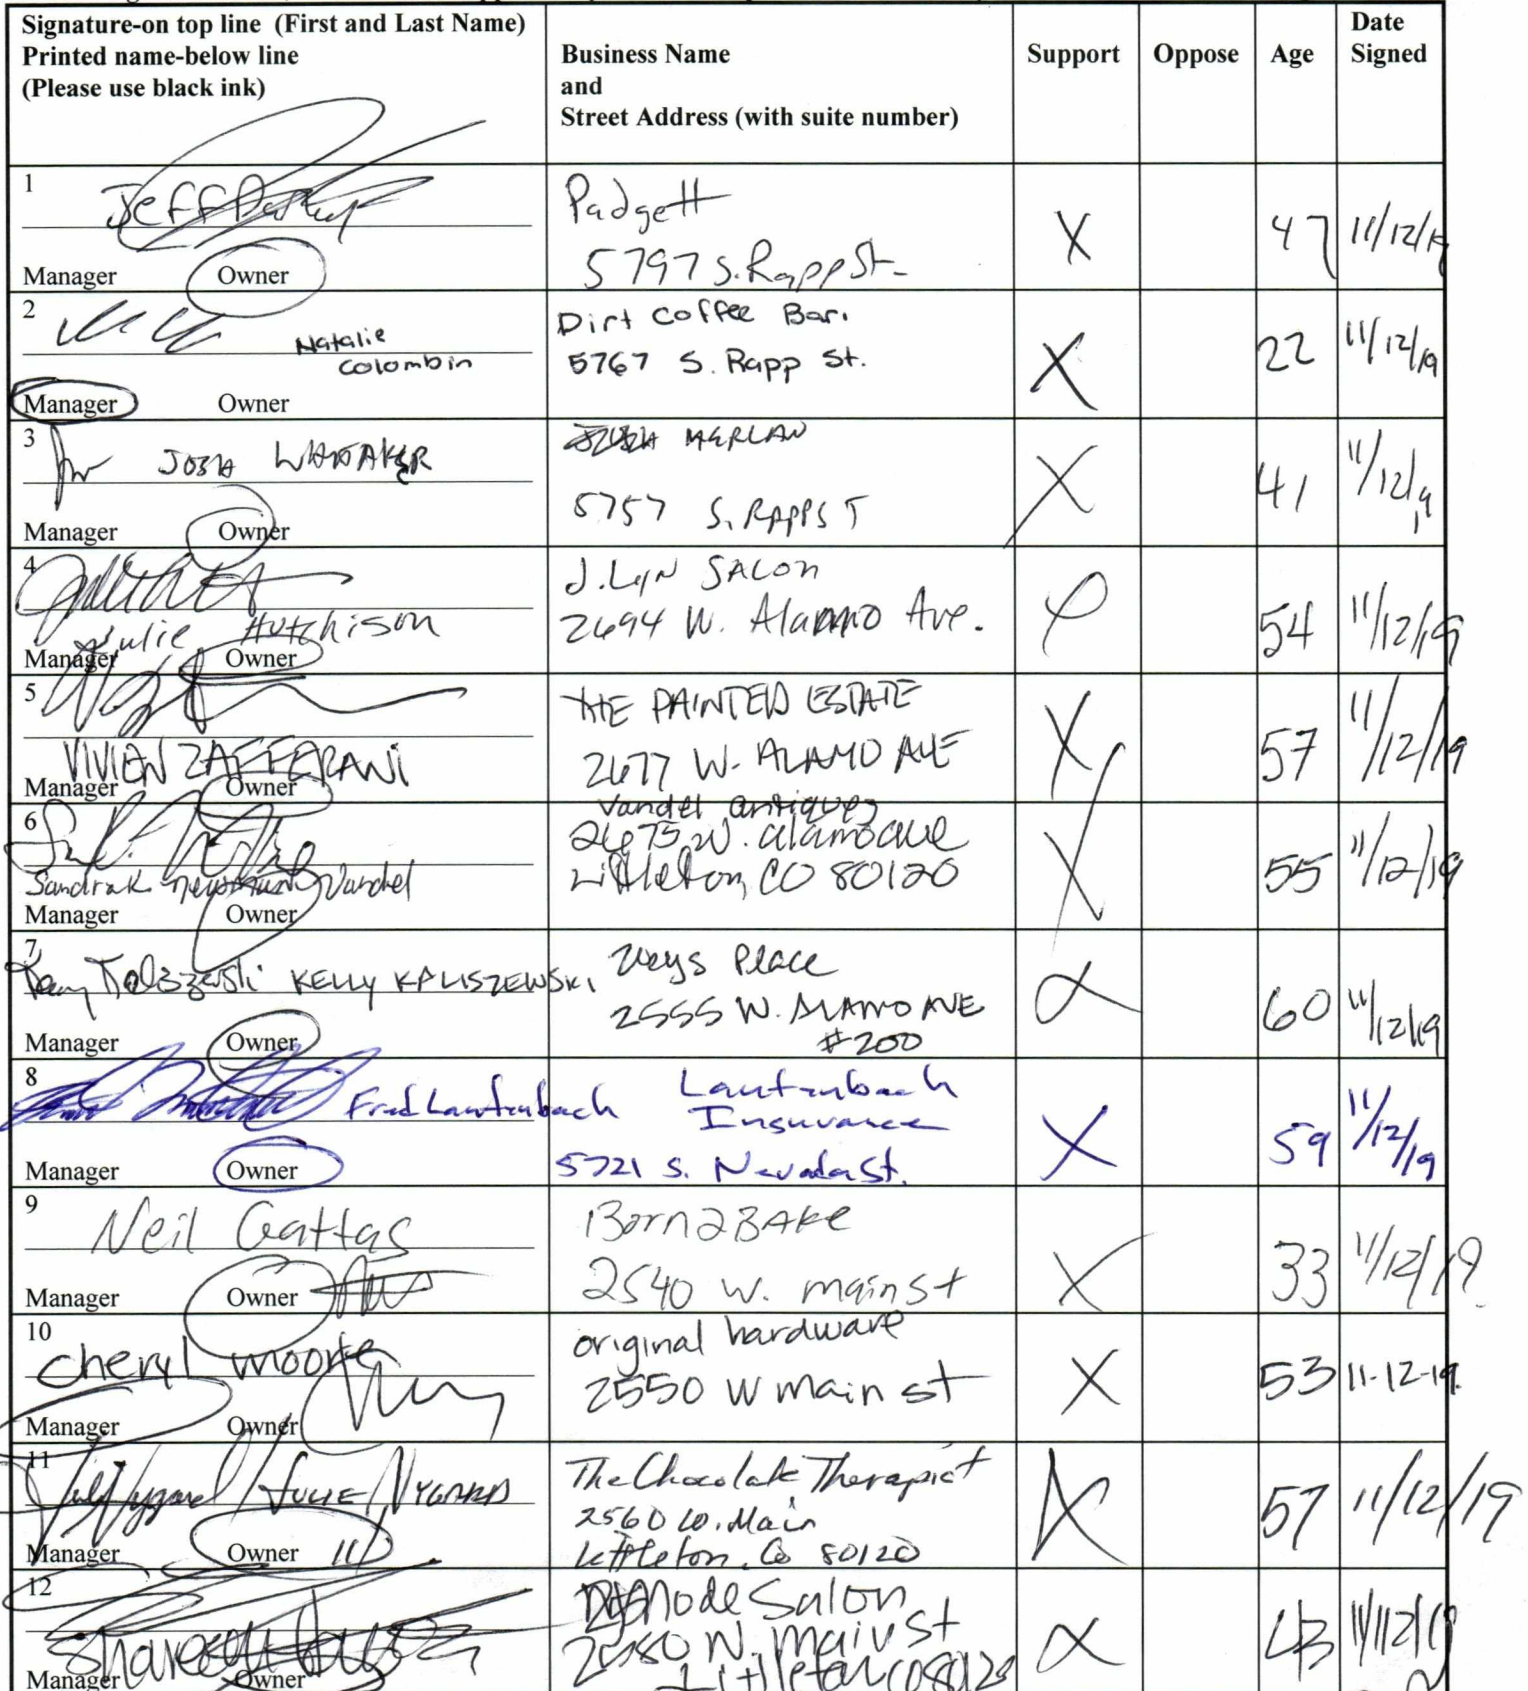 Signature-on top line (First and Last Name)
Printed name-below line
(Please use black ink)
Business Name
and
Street Address (with suite number)
Support
Oppose
Age
Date
Signed
1
Jeff
Manager Owner
Padgett
5797 S. Rapp St.
X
47
11/12/19
2
Natalie
Colombin
Manager Owner
Dirt Coffee Bar.
5767 S. Rapp St.
X
22
11/12/19
3
JOSH WHITAKER
Manager Owner
MERLAN
5757 S. RAPP ST
X
41
11/12/19
4
Julie Hutchison
Manager Owner
J. Lyn SALON
2694 W. Alamo Ave.
54
11/12/19
5
VIVIEN ZAFFERANI
Manager Owner
THE PAINTED ESTATE
2677 W. ALAMO AVE
X
57
11/12/19
6
Sandra K. Vandel
Manager Owner
Vandel antiques
2675 W. alamo ave
Littleton, CO 80120
X
55
11/12/19
7
KELLY KALISZEWSKI
Manager Owner
Place
2555 W. ALAMO AVE
#200
X
60
11/12/19
8
Fred Lautenbach
Manager Owner
Lautenbach
Insurance
5721 S. Nevada St.
X
59
11/12/19
9
Neil Gattas
Manager Owner
Born2BAKe
2540 W. main st
X
33
11/12/19
10
Cheryl moore
Manager Owner
original hardware
2550 W main st
X
53
11-12-19
11
JULIE NYGARD
Manager Owner
The Chocolate Therapist
2560 W. Main
Littleton, Co 80120
X
57
11/12/19
12
Manager Owner
Salon
main st
Littleton
X
43
11/12/19